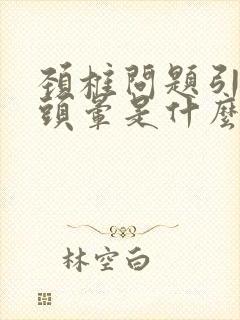 頚椎問題引
頭暈是什麼
林空白